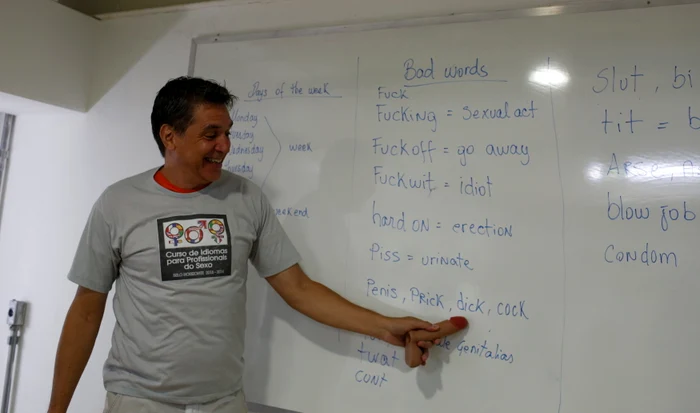 Days of the week
Monday
Tuesday
Wednesday
Thursday
week
weekend
Bad words
Fuck
Fucking = Sexual act
Fuck off = go away
Fuckwit = idiot
hard on = erection
Piss = urinate
Penis, Prick, dick, cock
genitalias
twat
cunt
Slut, bi
tit = b
Arse,
blow job
Condom
Curso de Idiomas
para Profissionais
do Sexo
BELO HORIZONTE